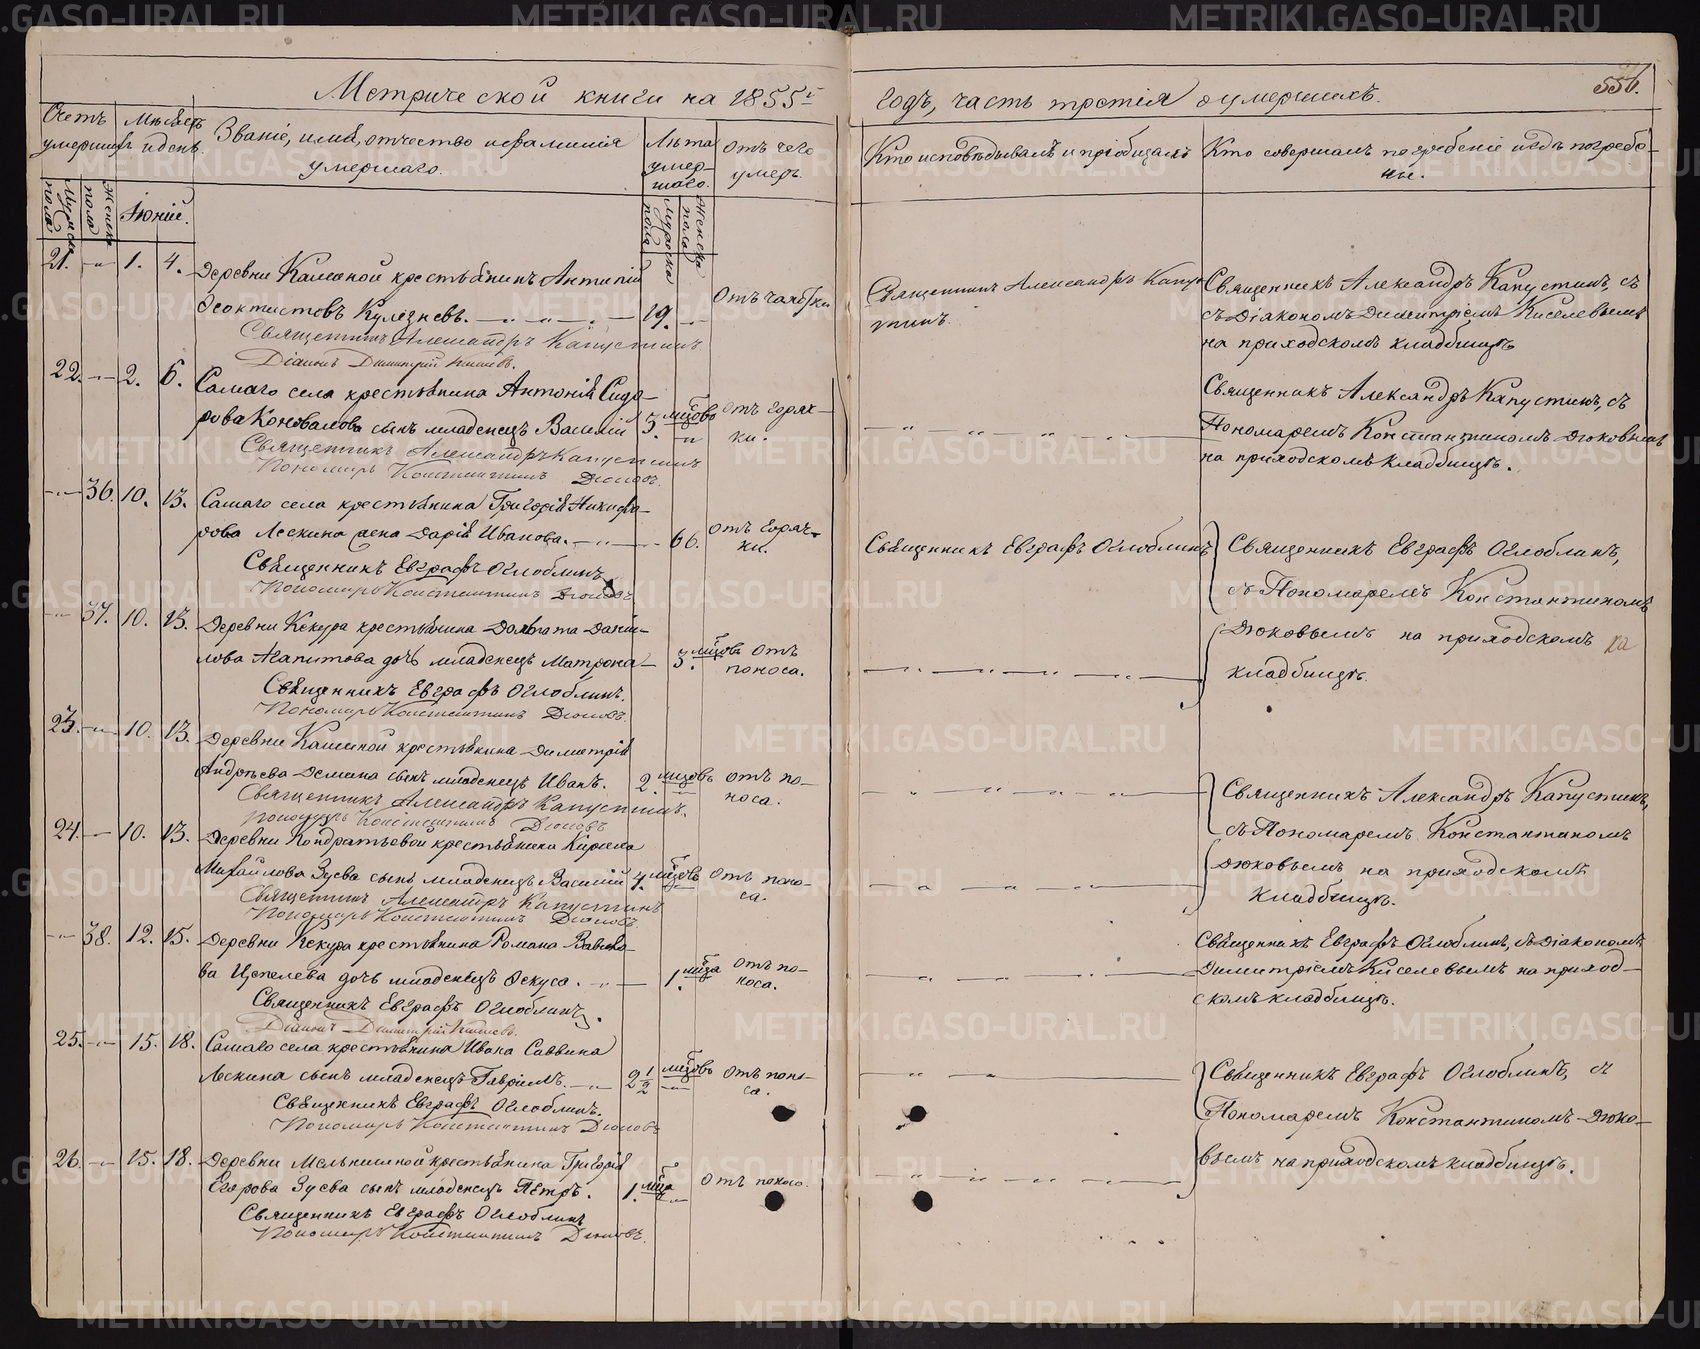 Метрической книги на 1855й
годъ, часть третія о умершихъ.
556.
Счетъ умершихъ
Мѣсяцъ и день.
Званіе, имя, отчество и фамилія умершаго.
Лѣта умершаго.
Отъ чего умеръ.
Кто исповѣдывалъ и пріобщалъ
Кто совершалъ погребеніе и гдѣ погребены.
Мужеска пола
Женска пола
Іюній.
Мужеска пола
Женска пола
21. — 1. 4. Деревни Каменой крестьянинъ Антипій
Ѳеоктистовъ Кулезневъ. 19.
Священникъ Александръ Капустинъ
Діаконъ Димитрій Киселевъ.
Священникъ Александръ Капустинъ.
Священникъ Александръ Капустинъ, съ
съ Діакономъ Димитріемъ Киселевымъ
на приходскомъ кладбищѣ
22. — 2. 6. Самаго села крестьянина Антонія Сидо-
рова Коновалова сынъ младенецъ Василій 3. мцовъ Отъ горяч-
ки.
Священникъ Александръ Капустинъ
Пономарь Константинъ Дюковъ.
Священникъ Александръ Капустинъ, съ
Пономаремъ Константиномъ Дюковымъ
на приходскомъ кладбищѣ.
— 36. 10. 13. Самаго села крестьянина Григорія Никифо-
рова Лескина жена Дарія Иванова. 66. Отъ горяч-
ки.
Священникъ Евграфъ Оглоблинъ
Пономарь Константинъ Дюковъ
Священникъ Евграфъ Оглоблинъ
Священникъ Евграфъ Оглоблинъ,
съ Пономаремъ Константиномъ
Дюковымъ на приходскомъ
кладбищѣ.
— 37. 10. 13. Деревни Кекура крестьянина Долмата Дани-
лова Агапитова дочь младенецъ Матрона 3. мцовъ Отъ
поноса.
Священникъ Евграфъ Оглоблинъ.
Пономарь Константинъ Дюковъ.
23. — 10. 13. Деревни Каменой крестьянина Димитрія
Андреева Демина сынъ младенецъ Иванъ. 2. мцовъ Отъ по-
носа.
Священникъ Александръ Капустинъ.
Пономарь Константинъ Дюковъ
Священникъ Александръ Капустинъ,
съ Пономаремъ Константиномъ
Дюковымъ на приходскомъ
кладбищѣ.
24. — 10. 13. Деревни Кондратьевой крестьянина Кирила
Михайлова Зуева сынъ младенецъ Василій 4. мцовъ Отъ поно-
са.
Священникъ Александръ Капустинъ
Пономарь Константинъ Дюковъ.
— 38. 12. 15. Деревни Кекура крестьянина Романа Вавило-
ва Цепелева дочь младенецъ Ѳекуса. 1. мца Отъ по-
носа.
Священникъ Евграфъ Оглоблинъ.
Діаконъ Димитрій Киселевъ.
Священникъ Евграфъ Оглоблинъ, съ Діакономъ
Димитріемъ Киселевымъ на приход-
скомъ кладбищѣ.
25. — 15. 18. Самаго села крестьянина Ивана Саввина
Лескина сынъ младенецъ Гавріилъ. 2 1/2 мцовъ Отъ поно-
са.
Священникъ Евграфъ Оглоблинъ.
Пономарь Константинъ Дюковъ
Священникъ Евграфъ Оглоблинъ, съ
Пономаремъ Константиномъ Дюко-
вымъ на приходскомъ кладбищѣ.
26. — 15. 18. Деревни Мельничной крестьянина Григорія
Егорова Зуева сынъ младенецъ Петръ. 1. мца Отъ поноса.
Священникъ Евграфъ Оглоблинъ
Пономарь Константинъ Дюковъ.
METRIKI.GASO-URAL.RU